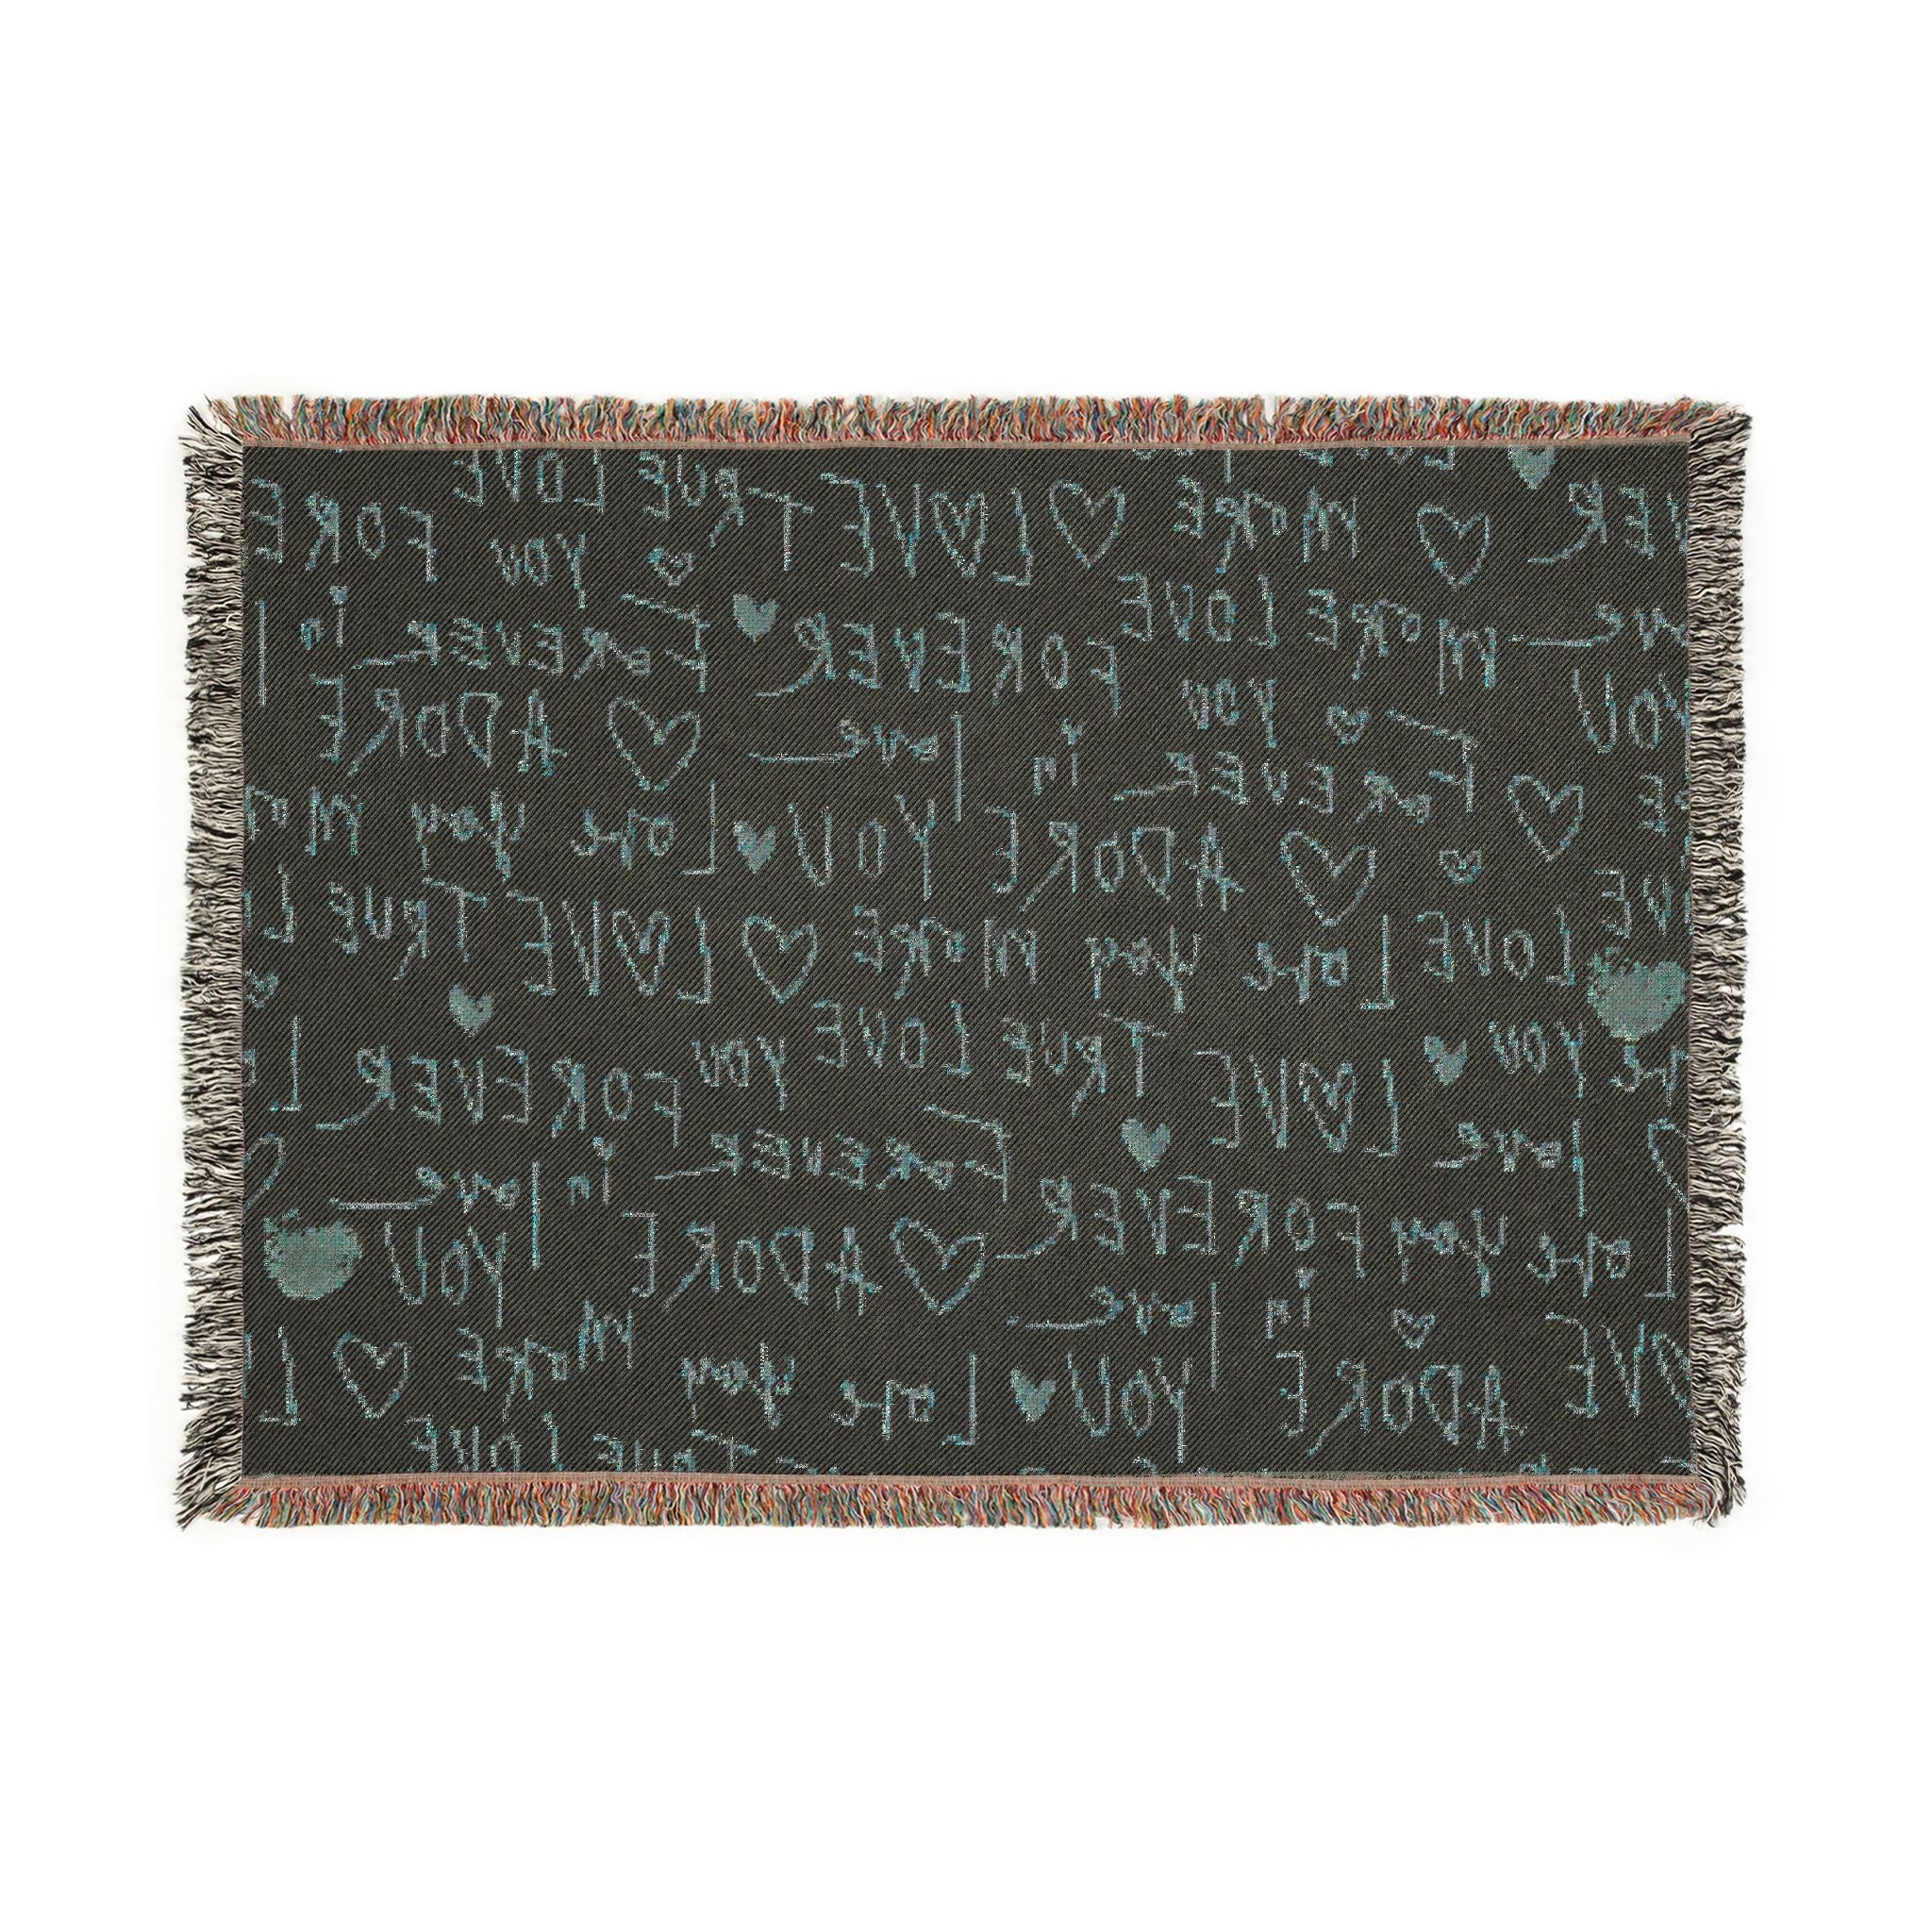 MORE LOVE TRUE LOVE FORE
YOU
MORE LOVE FOREVER FOREVER in
YOU love ADORE
FOREVER in YOU Love you
ADORE
LOVE Love you MORE LOVE TRUE
YOU LOVE TRUE LOVE YOU FOREVER
love FOREVER in love
Love you FOREVER ADORE YOU
in love MORE
ADORE YOU Love you
TRUE LOVE